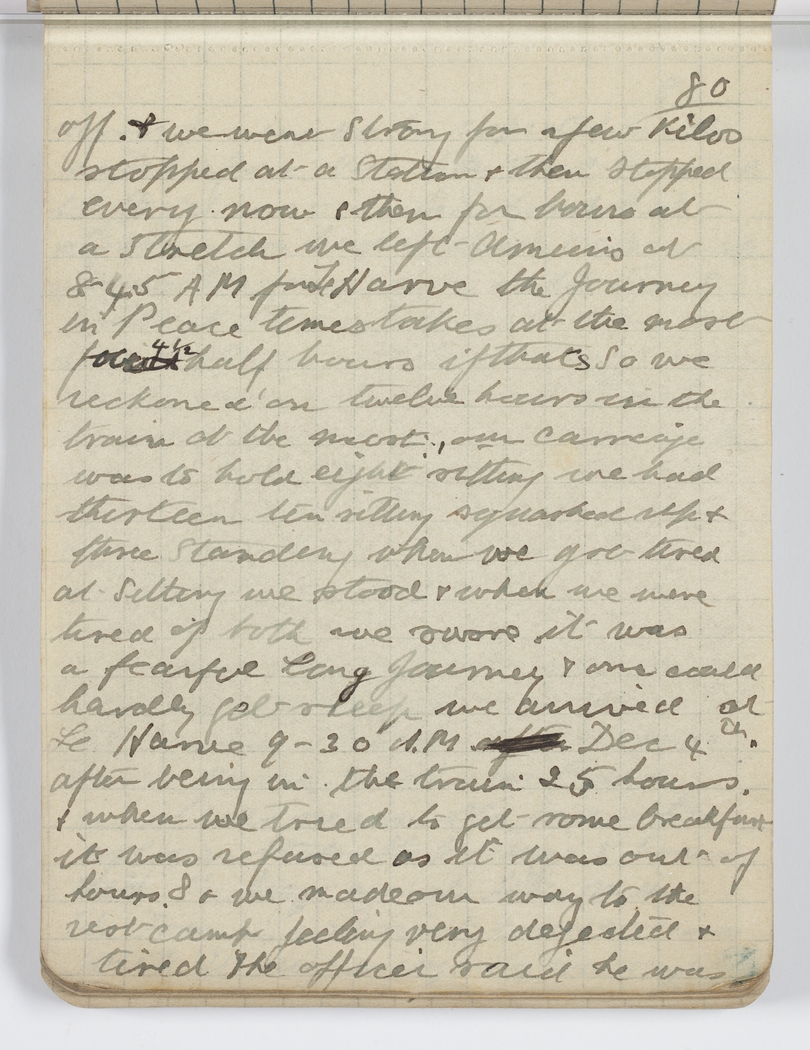 80
off. & we went Strong for a few Kilos
stopped at a Station & then stopped
every now & then for hours at
a Stretch we left Amiens at
8-45 AM for Le Harve the Journey
in Peace times takes at the most
4½ half hours if thats So we
reckoned on twelve hours in the
train at the most, our carriage
was to hold eight sitting we had
thirteen ten sitting squashed up &
three Standing when we got tired
at Sitting we stood & when we were
tired of both we swore it was
a fearful Long Journey & one could
hardly get sleep we arrived at
Le Harve 9-30 A.M Dec 4th.
after being in the train 25 hours.
& when we tried to get some breakfast
it was refused as it was out of
hours. So we made our way to the
rest camp feeling very dejected &
tired The officer said he was